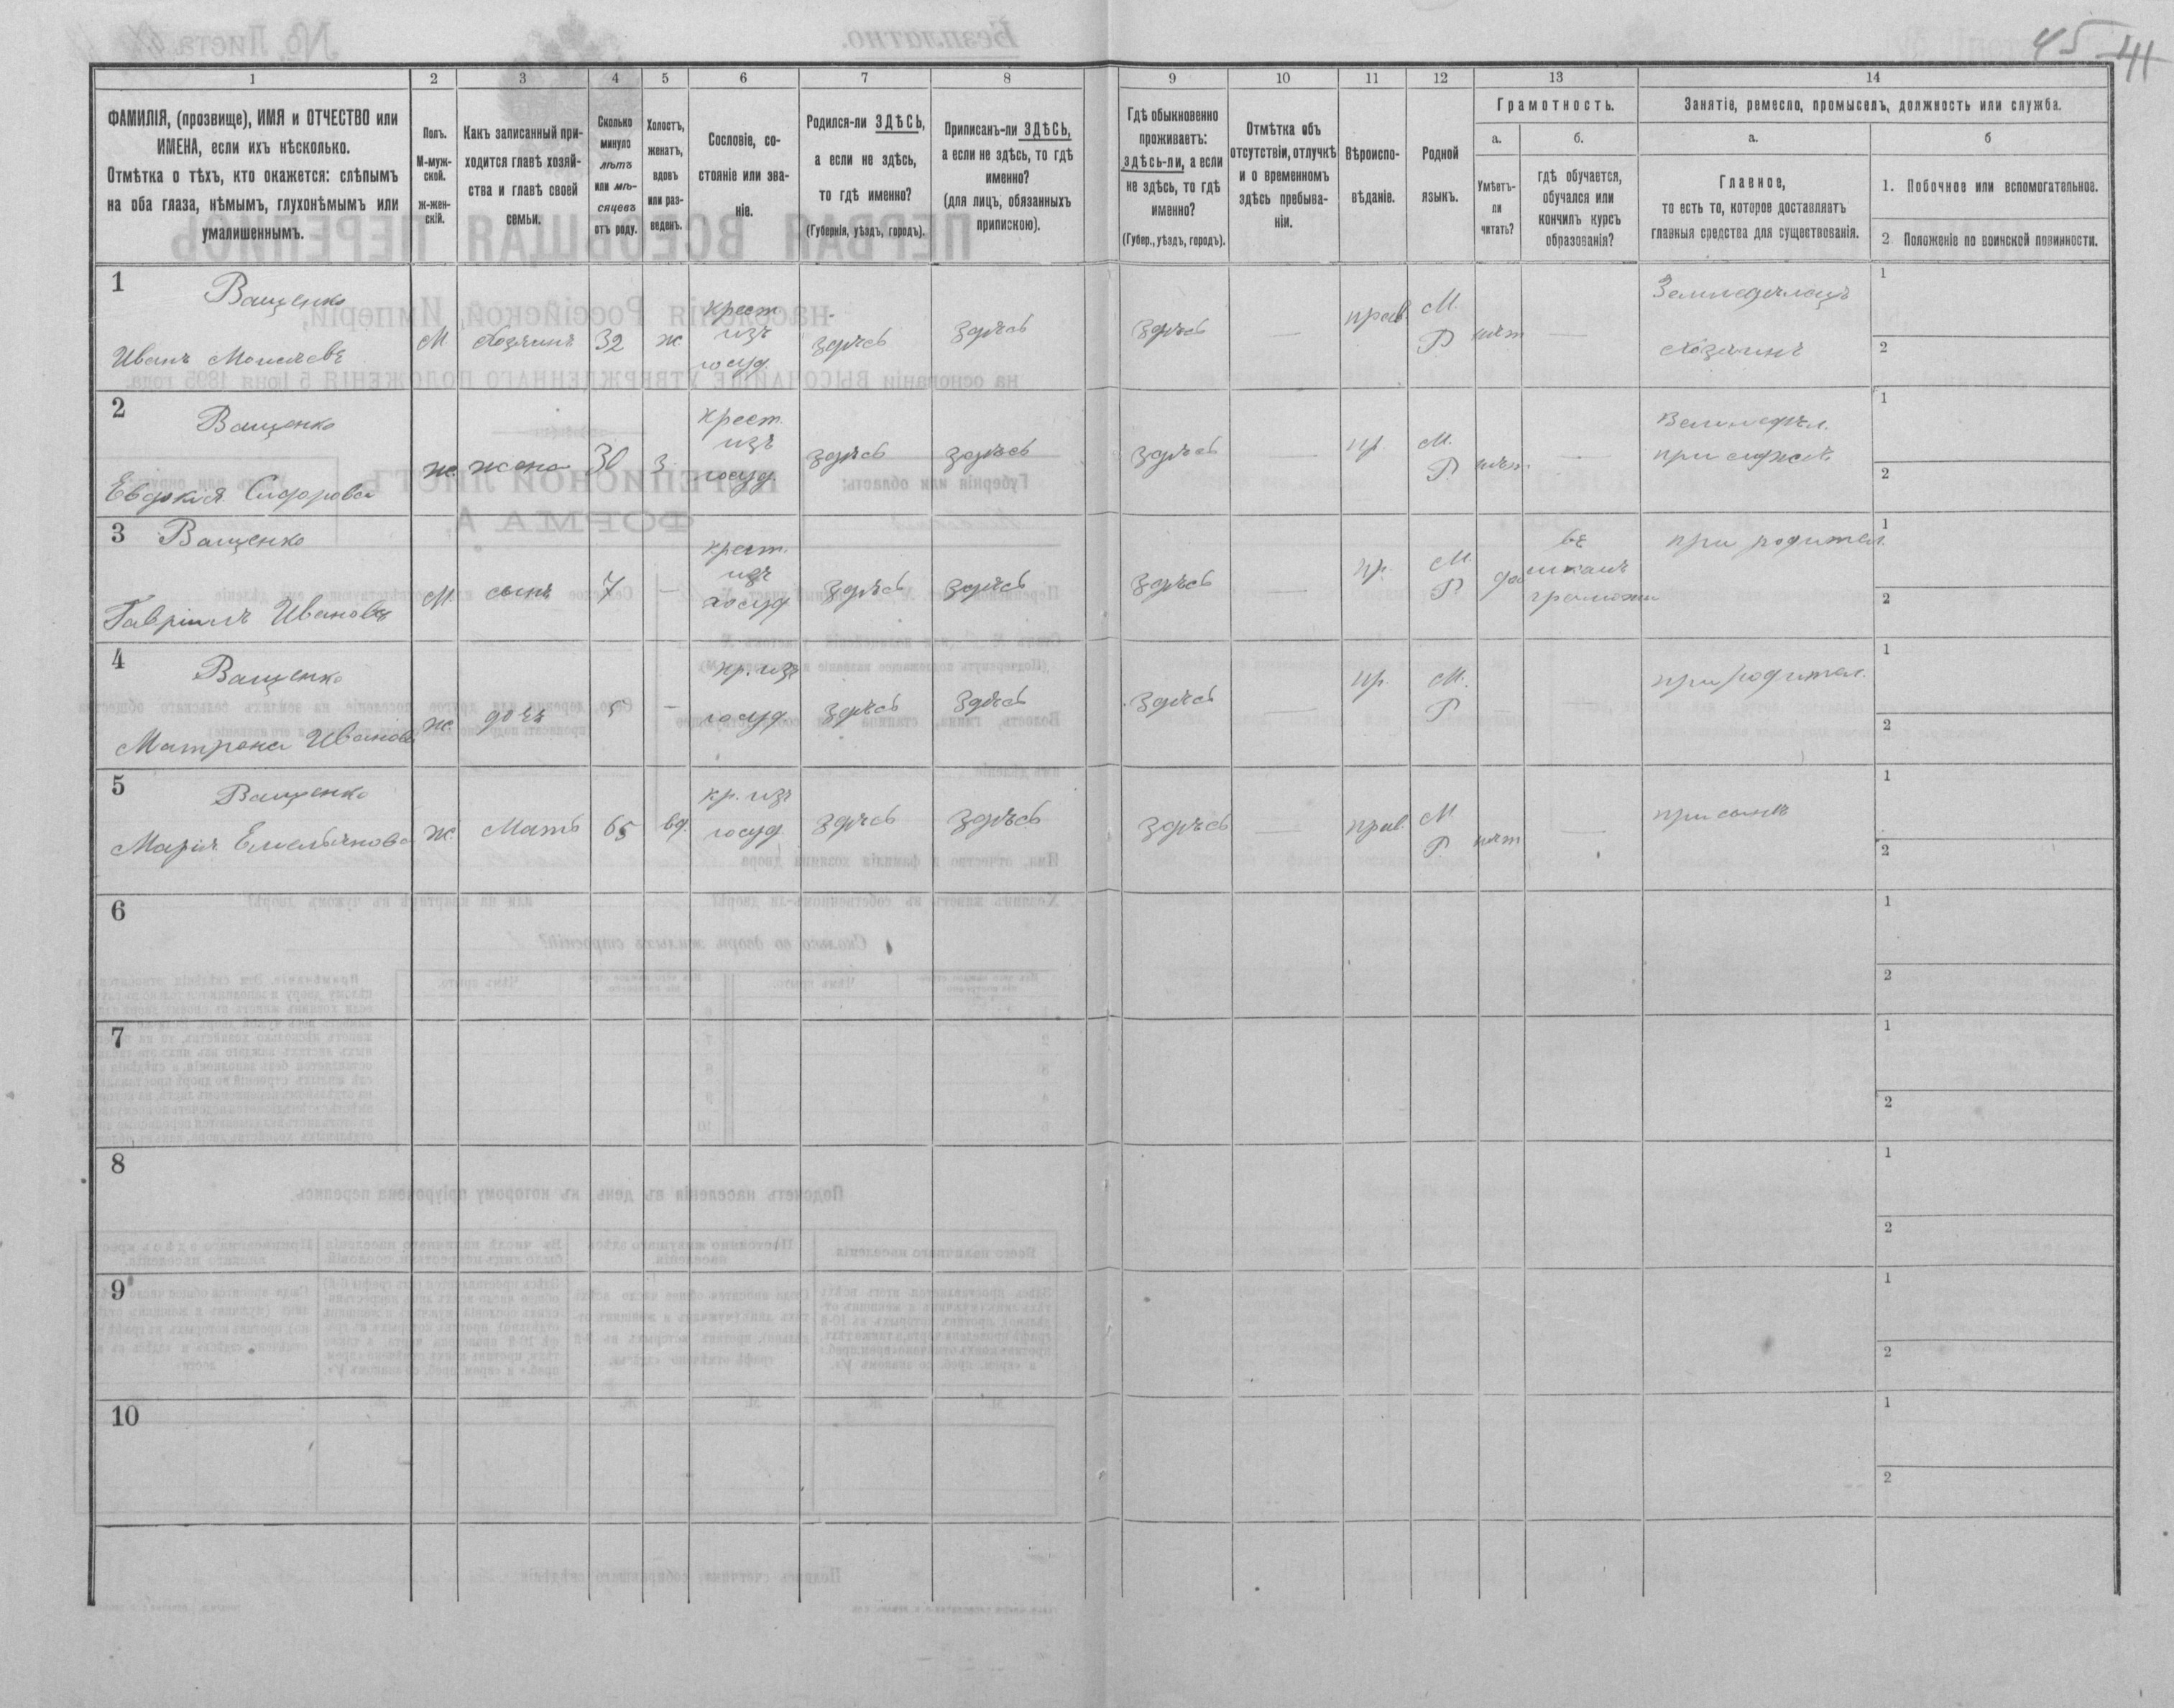 45 41
1 2 3 4 5 6 7 8 9 10 11 12 13 14
ФАМИЛІЯ, (прозвище), ИМЯ и ОТЧЕСТВО или
ИМЕНА, если ихъ нѣсколько.
Отмѣтка о тѣхъ, кто окажется: слѣпымъ
на оба глаза, нѣмымъ, глухонѣмымъ или
умалишеннымъ.
Полъ.
М-муж-
ской.
ж-жен-
скій.
Какъ записанный при-
ходится главѣ хозяй-
ства и главѣ своей
семьи.
Сколько
минуло
лѣтъ
или мѣ-
сяцевъ
отъ роду.
Холостъ,
женатъ,
вдовъ
или раз-
веденъ.
Сословіе, со-
стояніе или зва-
ніе.
Родился-ли ЗДѢСЬ,
а если не здѣсь,
то гдѣ именно?
(Губернія, уѣздъ, городъ).
Приписанъ-ли ЗДѢСЬ,
а если не здѣсь, то гдѣ
именно?
(для лицъ, обязанныхъ
припискою).
Гдѣ обыкновенно
проживаетъ:
здѣсь-ли, а если
не здѣсь, то гдѣ
именно?
(Губер., уѣздъ, городъ).
Отмѣтка объ
отсутствіи, отлучкѣ
и о временномъ
здѣсь пребыва-
ніи.
Вѣроиспо-
вѣданіе.
Родной
языкъ.
Грамотность.
а.
Умѣетъ-
ли
читать?
б.
гдѣ обучается,
обучался или
кончилъ курсъ
образованія?
Занятіе, ремесло, промыселъ, должность или служба.
а.
Главное,
то есть то, которое доставляетъ
главныя средства для существованія.
б
1. Побочное или вспомогательное.
2 Положеніе по воинской повинности.
1 Ващенко
Иванъ Моисеевъ М. Хозяинъ 32 ж. крест. изъ госуд. здѣсь здѣсь здѣсь — прав. М. Р. нѣт — Земледѣлецъ Хозяинъ 1 2
2 Ващенко
Евдокія Сидорова ж. жена 30 з. крест. изъ госуд. здѣсь здѣсь здѣсь — пр. М. Р. нѣт — Земледѣл. при мужѣ 1 2
3 Ващенко
Гавріилъ Ивановъ М. сынъ 7 — крест. изъ госуд здѣсь здѣсь здѣсь — пр. М. Р. да въ школѣ грамоты при родител. 1 2
4 Ващенко
Матрона Иванова ж дочь 5 — кр. изъ госуд. здѣсь здѣсь здѣсь — пр. М. Р. — — при родител. 1 2
5 Ващенко
Марія Емельянова ж. Мать 65 вд. кр. изъ госуд. здѣсь здѣсь здѣсь — прав. М Р. нѣт — при сынѣ 1 2
6 1 2
7 1 2
8 1 2
9 1 2
10 1 2